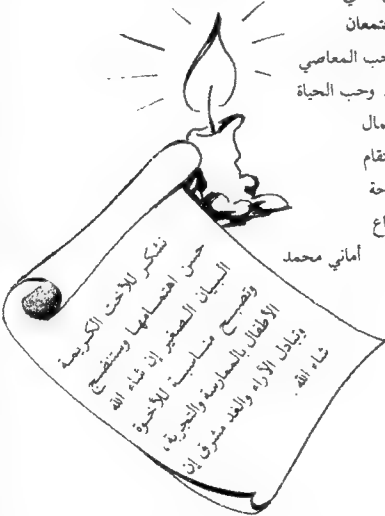 تمعان
حب المعاصي
وحب الحياة
مال
تقام
حة
اع
أماني محمد
نشكر للأخت الكريمة
حسن اهتمامها وستنضج
البيان الصغير إن شاء الله
وتصبح مناسبة للأخوة
الأطفال بالممارسة والتجربة،
وتبادل الآراء والغد مشرق إن
شاء الله .